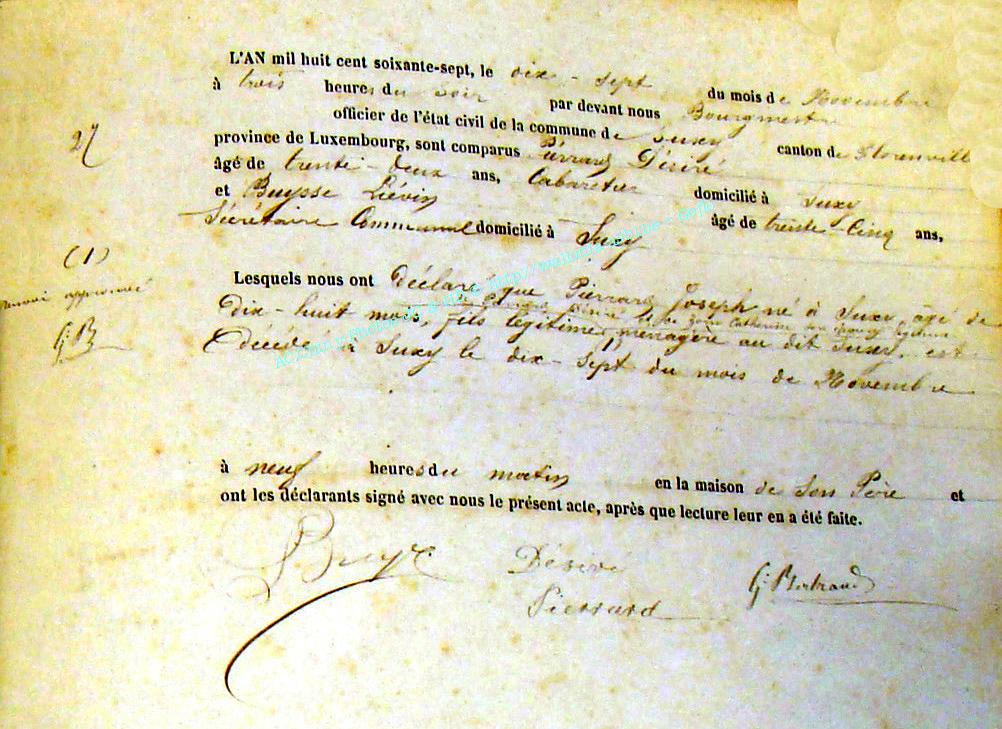 L'AN mil huit cent soixante-sept, le dix-sept du mois de Novembre
à trois heures du soir par devant nous Bourgmestre
officier de l'état civil de la commune de Suxy canton de Florenville
province de Luxembourg, sont comparus Piérrard Désiré
âgé de trente-deux ans, Cabaretier domicilié à Suxy
et Buysse Liévin âgé de trente-Cinq ans,
Sécrétaire Communal domicilié à Suxy
27
(1)
renvoi approuvé
G.B
Lesquels nous ont Déclaré que Piérrard Joseph né à Suxy âgé de
Dix-huit mois, fils légitime (1) ménagère au dit Suxy, est
Décédé à Suxy le dix-sept du mois de Novembre
à neuf heures du matin en la maison de son Père et
ont les déclarants signé avec nous le présent acte, après que lecture leur en a été faite.
Désiré
Pierrard
G. Bertrand